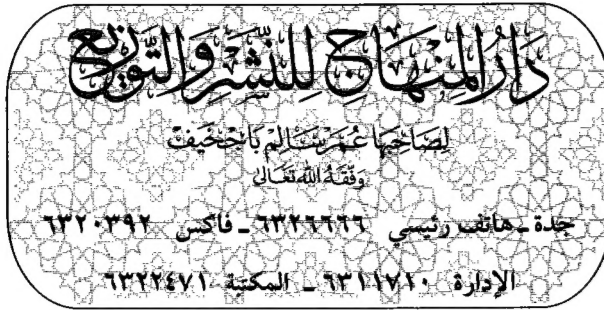 دَارُ المِنْهَاج لِلنَّشْرِ وَالتَّوْزِيْع
لِصَاحِبِهَا عُمَر سَالِم بَاجخَيف
وَفَّقَهُ اللهُ تَعَالَىٰ
جدة ـ هاتف رئيسي ٦٣٢٦٦٦٦ ـ فاكس ٦٣٢٠٣٩٢
الإدارة ٦٣١١٧١٠ ـ المكتبة ٦٣٢٢٤٧١